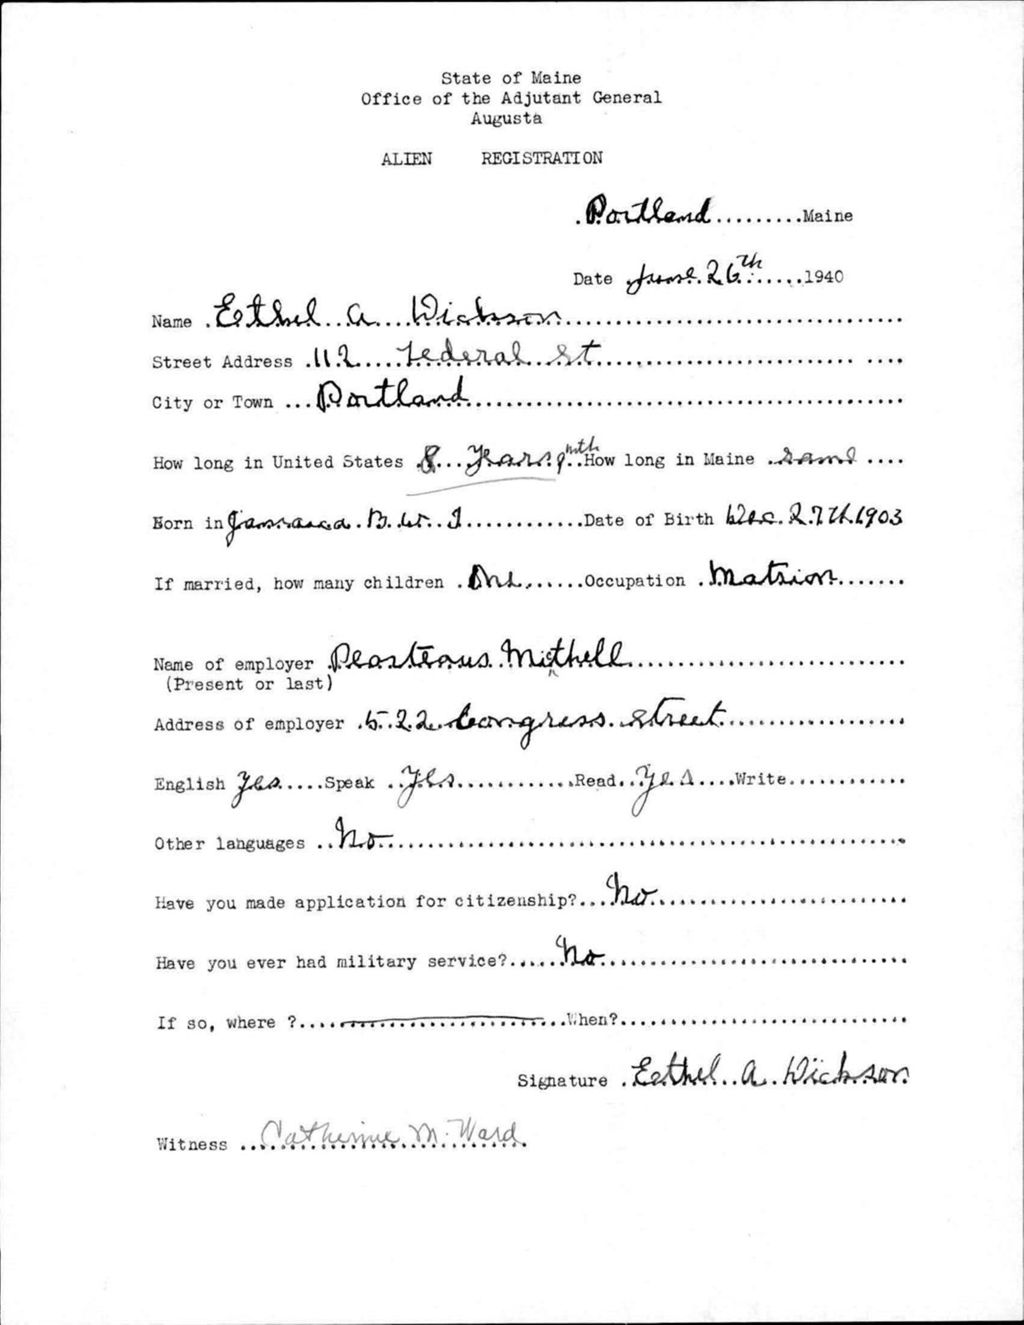 State of Maine
Office of the Adjutant General
Augusta
ALIEN REGISTRATION
Portland Maine
Date June 26th 1940
Name Eethel A Dickson
Street Address 112 Federal St
City or Town Portland
How long in United States 8 Years 9 mth How long in Maine same
Born in Jamaica B. W. I Date of Birth Dec. 27th 1903
If married, how many children One Occupation Matrion
Name of employer Mithell
(Present or last)
Address of employer 522 Congress Street
English Yes Speak Yes Read Yes Write
Other languages No
Have you made application for citizenship? No
Have you ever had military service? No
If so, where ? When?
Signature Eethel A. Dickson
Witness Catherine M. Ward